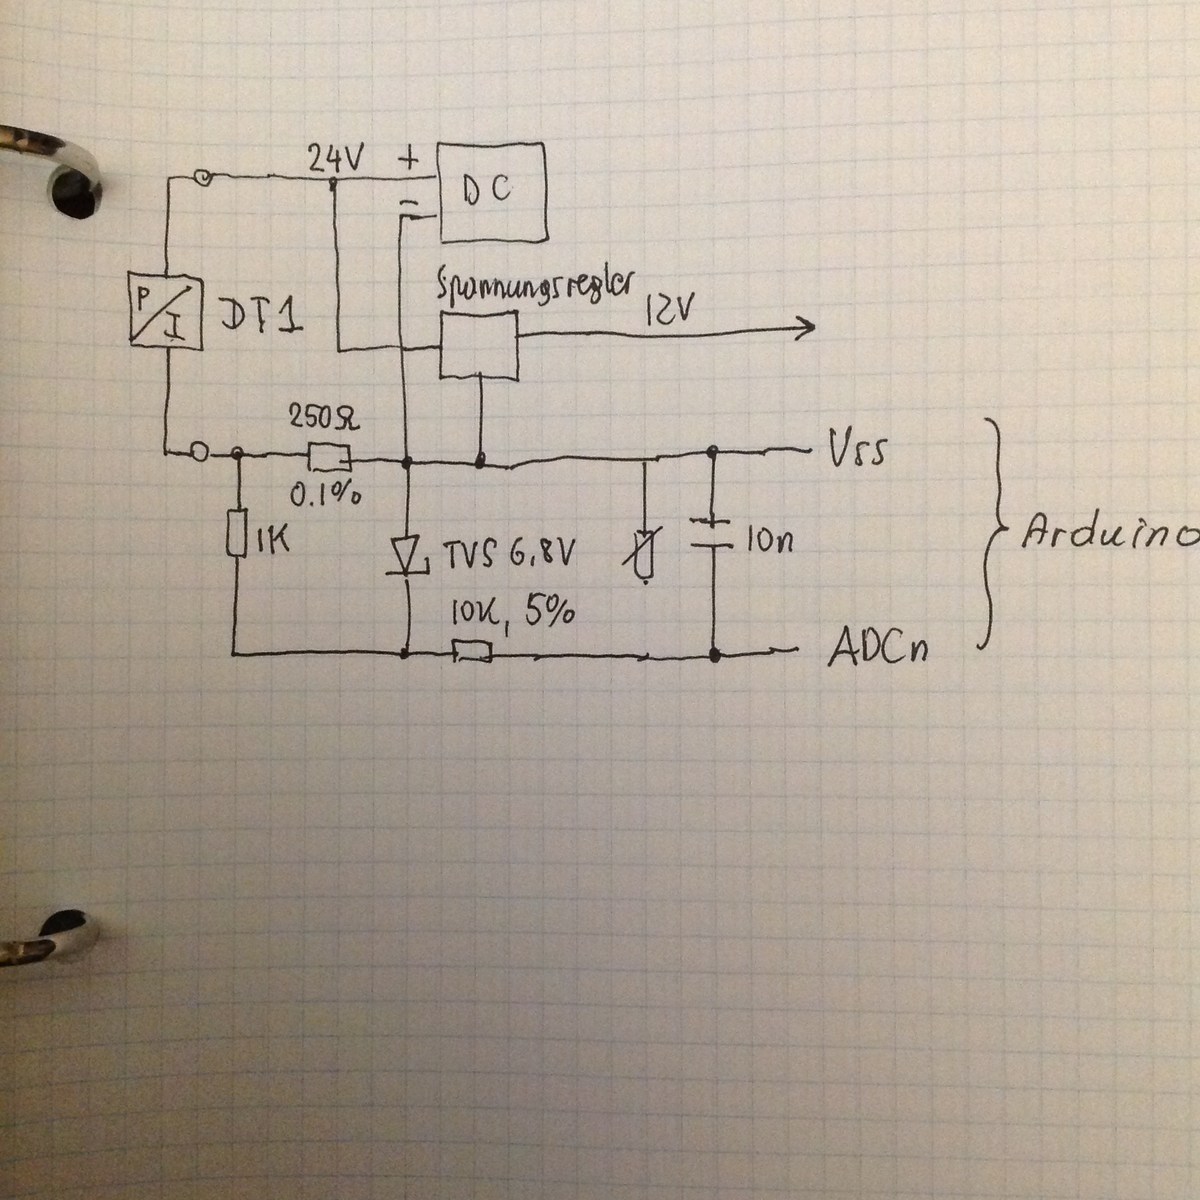 24V + DC
−
Spannungsregler
12V
P
I
DT1
250Ω
0.1%
Vss
1K
TVS 6,8V
10n
Arduino
10K, 5%
ADCn